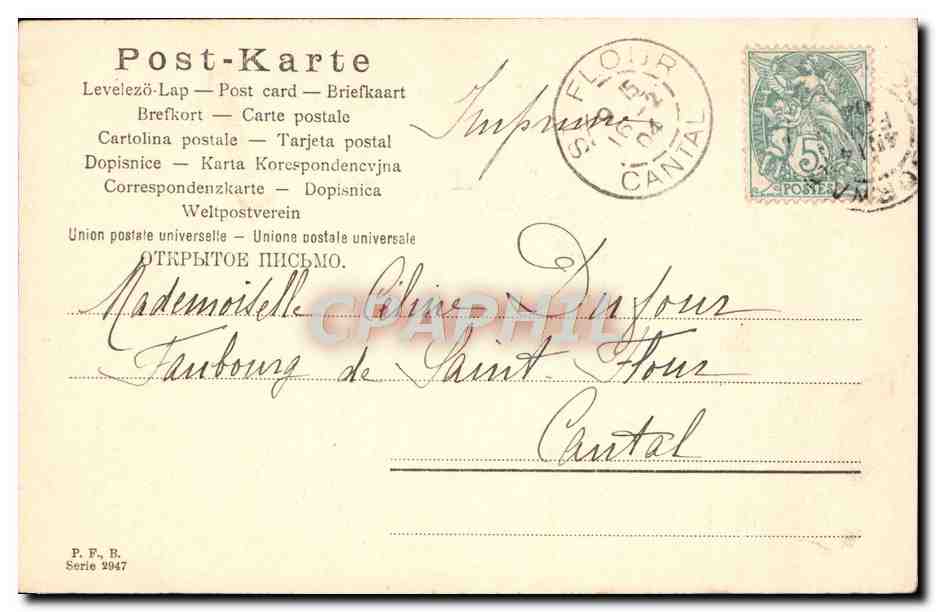 Post-Karte
Levelezö-Lap — Post card — Briefkaart
Brefkort — Carte postale
Cartolina postale — Tarjeta postal
Dopisnice — Karta Korespondencyjna
Correspondenzkarte — Dopisnica
Weltpostverein
Union postale universelle — Unione postale universale
ОТКРЫТОЕ ПИСЬМО.
Imprimé
ST FLOUR
16 5
2
04
CANTAL
5
POSTES
Mademoiselle Céline Dufour
CPAPHIL
Faubourg de Saint-Flour
Cantal
P. F., B.
Serie 2947